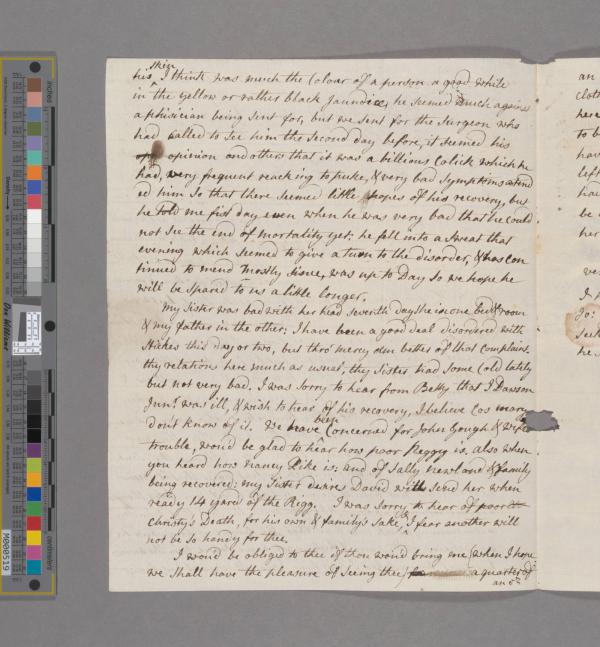 skin
his ^ I think was much the Colour of a person a good while
in the yellow or rather black Jaundice, he seemed much against
a phisician being sent for, but we sent for the Surgeon who
had called to see him the second day before, it seemed his
opinion and others that it was a billious Colick which he
had, very frequent reaching to puke, & very bad Symptoms attend
ed him So that there seemed little hopes of his recovery, but
he Told me first day even when he was very bad that he could
not see the end of mortality yet: he fell into a sweat that
evening which seemed to give a turn to the disorder, & has con
tinued to mend mostly since, was up to Day so we hope he
will be spared to us a little longer.
My Sister was bad with her head Seventh day she in one bed room
& my father in the other: I have been a good deal disordered with
this day or two, but thro' mercy am better of that Complaint.
thy relations here much as usual, thy Sister had some Cold lately
but not very bad. I was sorry to hear from Betty that J Dawson
Junr. was ill, & wish to hear of his recovery, I believe Cos mary
don't know of it. We have been Concerned for John Gough & wife's
trouble, wou'd be glad to hear how poor Peggy is. also when
you heard how nancy Pike is: and of Sally newland & family
being recovered: my Sister desires David will send her when
ready 14 yards of the Rigg. I was sorry to hear of poor
Christy's Death, for his own & family's sake, & I fear another will
not be so handy for thee.
I wou'd be obliged to thee if thou wou'd bring me (when I hope
we shall have the pleasure of seeing thee) a quarter of
an oz
an
cloth
here
to b
hav
left
had
be
her
ve
I
Jo:
seek
he
inches
centimeters
Density
M000519